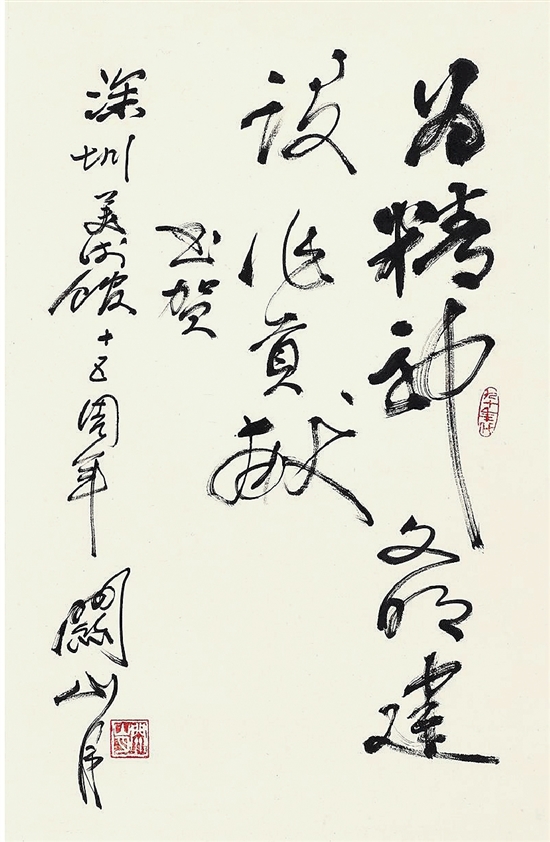 为精神文明建
设作贡献
书贺
深圳美术馆十五周年
關山月